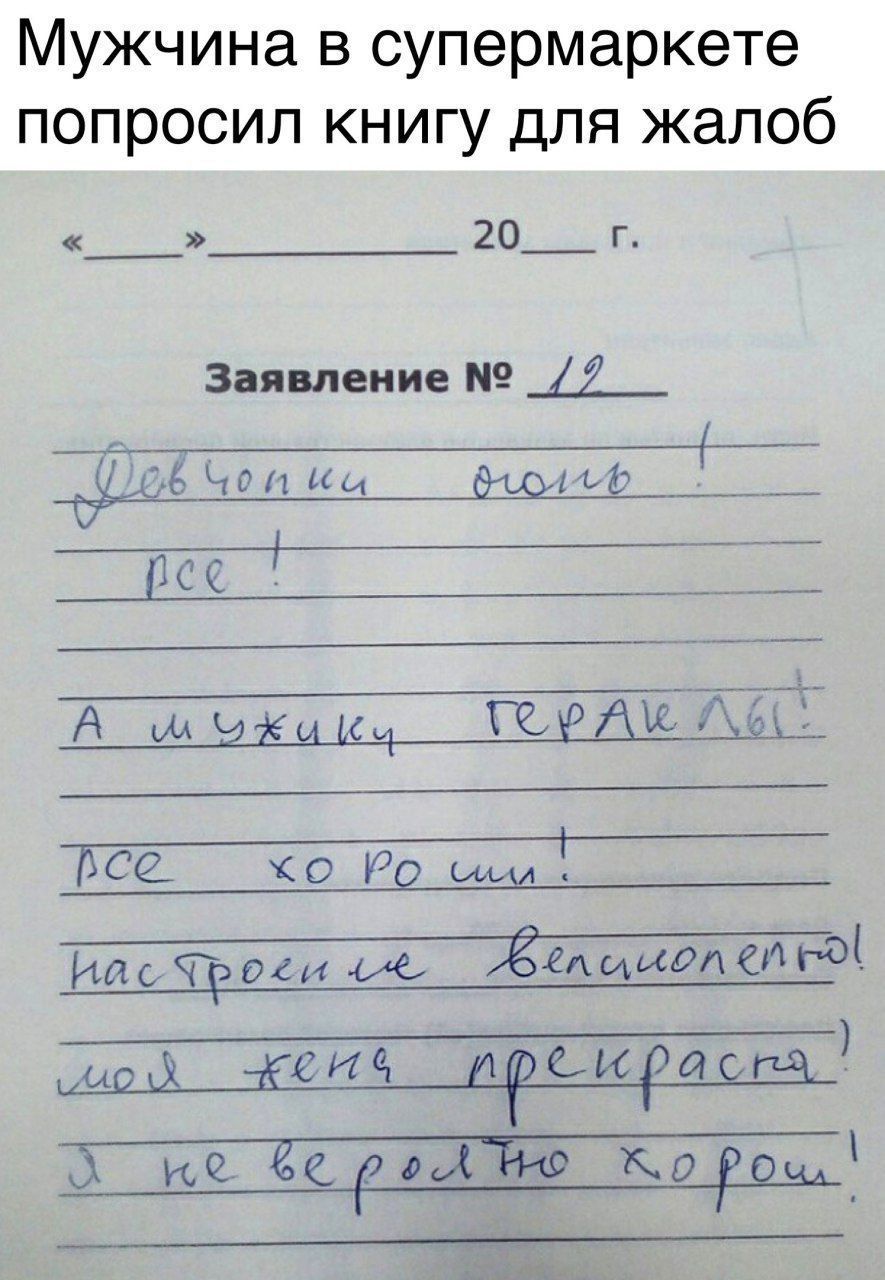 Мужчина в супермаркете
попросил книгу для жалоб
«____»____________ 20___ г.
Заявление № 12
Девчопки огонь !
все !
А мужики ГЕРАКЛЫ!
все хороши!
настроение великолепно!
моя жена прекрасна!
Я не вероятно хорош!